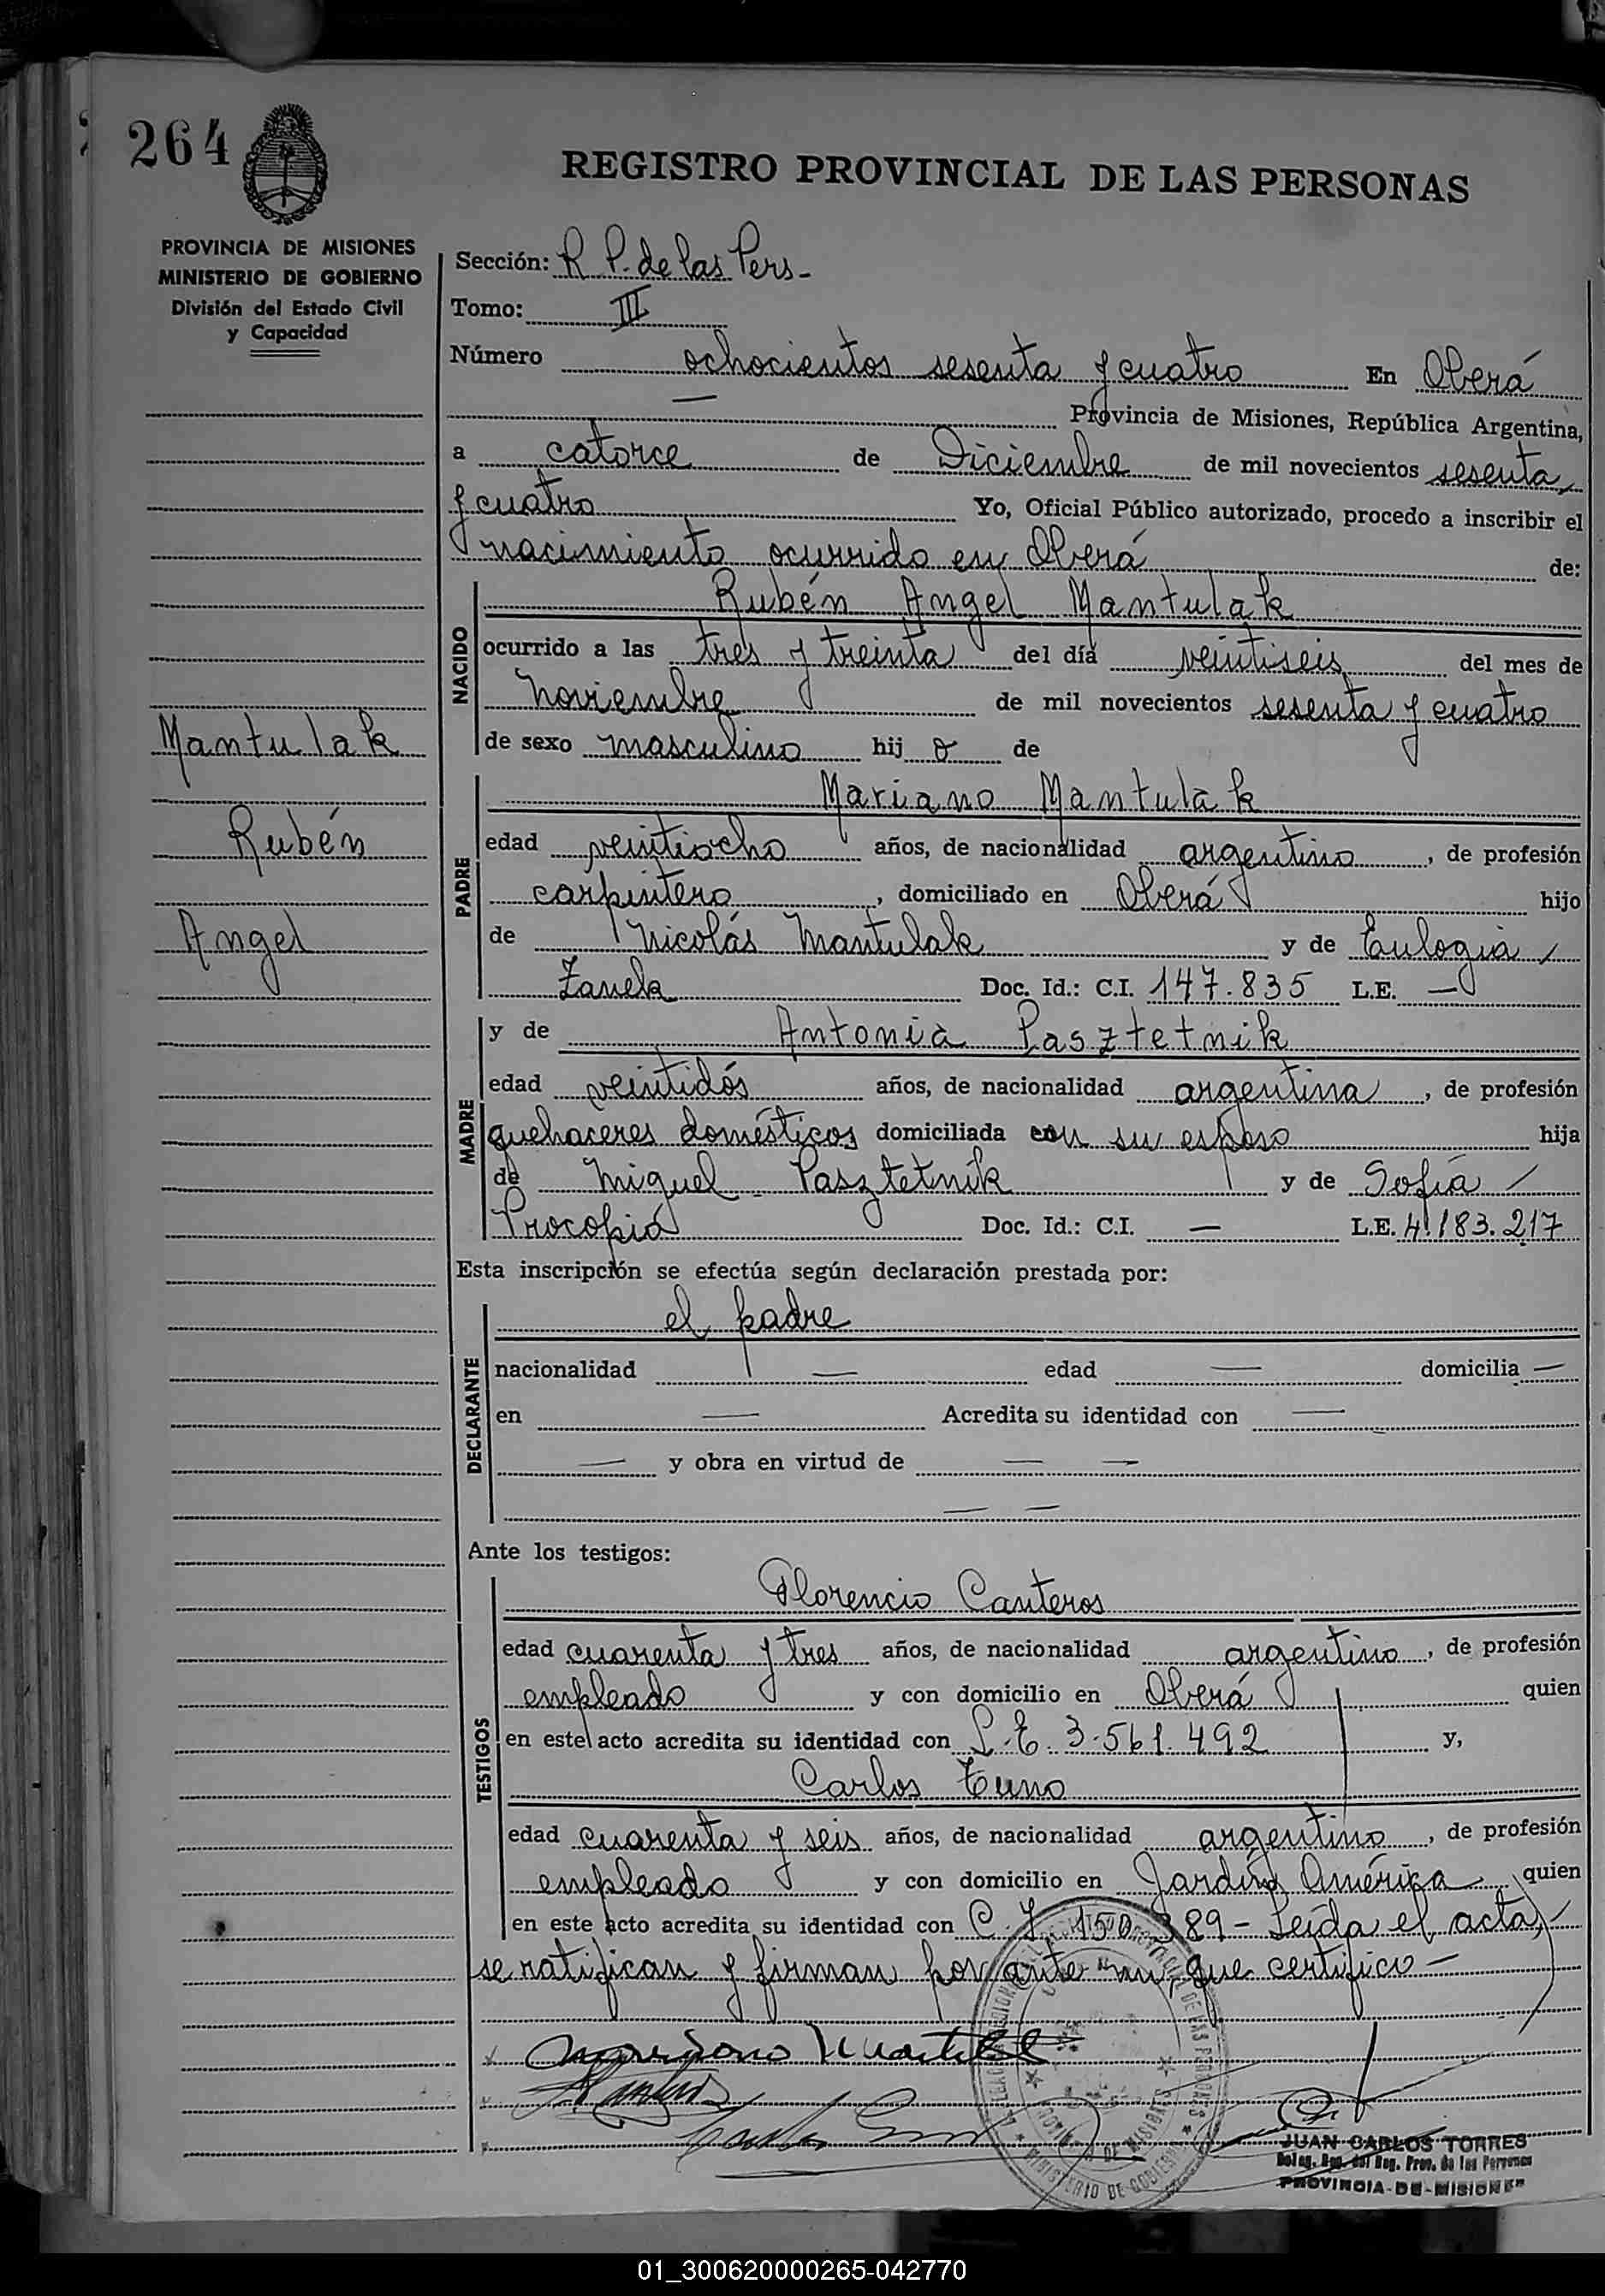 264
REGISTRO PROVINCIAL DE LAS PERSONAS
PROVINCIA DE MISIONES
MINISTERIO DE GOBIERNO
División del Estado Civil
y Capacidad
Sección: R P. de las Pers-
Tomo: III
Número ochocientos sesenta y cuatro En Oberá
— Provincia de Misiones, República Argentina,
a catorce de Diciembre de mil novecientos sesenta
y cuatro Yo, Oficial Público autorizado, procedo a inscribir el
nacimiento ocurrido en Oberá de:
NACIDO
Rubén Angel Mantulak
ocurrido a las tres y treinta del día veintiseis del mes de
noviembre de mil novecientos sesenta y cuatro
de sexo masculino hij o de
Mantulak
Rubén
Angel
PADRE
Mariano Mantulak
edad veintiocho años, de nacionalidad argentino, de profesión
carpintero, domiciliado en Oberá hijo
de Nicolás Mantulak y de Eulogia
Zanek Doc. Id.: C.I. 147.835 L.E. —
MADRE
y de Antonia Pasztetnik
edad veintidós años, de nacionalidad argentina, de profesión
quehaceres domésticos domiciliada con su esposo hija
de Miguel Pasztetnik y de Sofía
Procopia Doc. Id.: C.I. — L.E. 4.183.217
Esta inscripción se efectúa según declaración prestada por:
DECLARANTE
el padre
nacionalidad — edad — domicilia —
en — Acredita su identidad con —
— y obra en virtud de — —
— —
Ante los testigos:
TESTIGOS
Florencio Canteros
edad cuarenta y tres años, de nacionalidad argentino, de profesión
empleado y con domicilio en Oberá quien
en este acto acredita su identidad con L.E. 3.561.492 y,
Carlos Euno
edad cuarenta y seis años, de nacionalidad argentino, de profesión
empleado y con domicilio en Jardín América quien
en este acto acredita su identidad con C.I. 150.389 - Leída el acta,
se ratifican y firman por ante mí, que certifico -
JUAN CARLOS TORRES
Deleg. Reg. del Reg. Prov. de las Personas
PROVINCIA DE MISIONES
MINISTERIO DE GOBIERNO
01_300620000265-042770